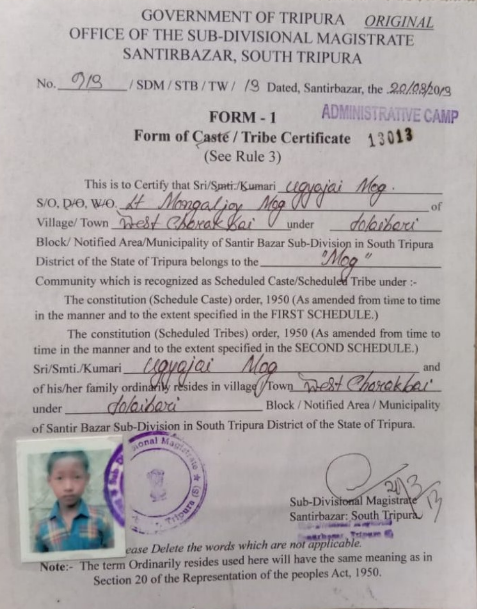 GOVERNMENT OF TRIPURA ORIGINAL
OFFICE OF THE SUB-DIVISIONAL MAGISTRATE
SANTIRBAZAR, SOUTH TRIPURA
No. 913 / SDM / STB / TW / 13 Dated, Santirbazar, the 20/03/2013
ADMINISTRATIVE CAMP
FORM - 1
Form of Caste / Tribe Certificate 13013
(See Rule 3)
This is to Certify that Sri/Smti./Kumari Ugyajai Mog.
S/O, D/O, W/O. Lt Mongaljoy Mog of
Village/ Town West Charakbai under Jolaibari
Block/ Notified Area/Municipality of Santir Bazar Sub-Division in South Tripura
District of the State of Tripura belongs to the "Mog"
Community which is recognized as Scheduled Caste/Scheduled Tribe under :-
The constitution (Schedule Caste) order, 1950 (As amended from time to time
in the manner and to the extent specified in the FIRST SCHEDULE.)
The constitution (Scheduled Tribes) order, 1950 (As amended from time to
time in the manner and to the extent specified in the SECOND SCHEDULE.)
Sri/Smti./Kumari Ugyajai Mog and
of his/her family ordinarily resides in village/Town West Charakbai
under Jolaibari Block / Notified Area / Municipality
of Santir Bazar Sub-Division in South Tripura District of the State of Tripura.
Sub-Divisional Magistrate
Santirbazar: South Tripura
ease Delete the words which are not applicable.
Note:- The term Ordinarily resides used here will have the same meaning as in
Section 20 of the Representation of the peoples Act, 1950.